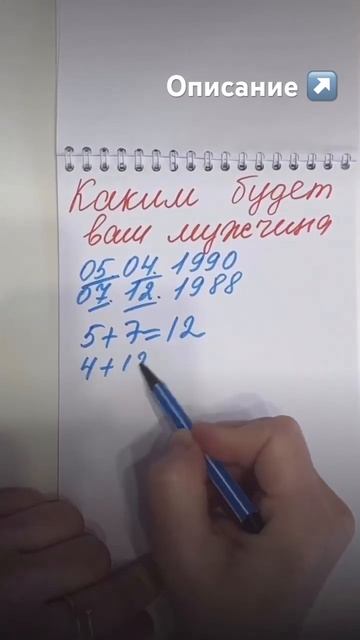 Описание ↗
Каким будет
ваш мужчина
05.04.1990
07.12.1988
5+7=12
4+12